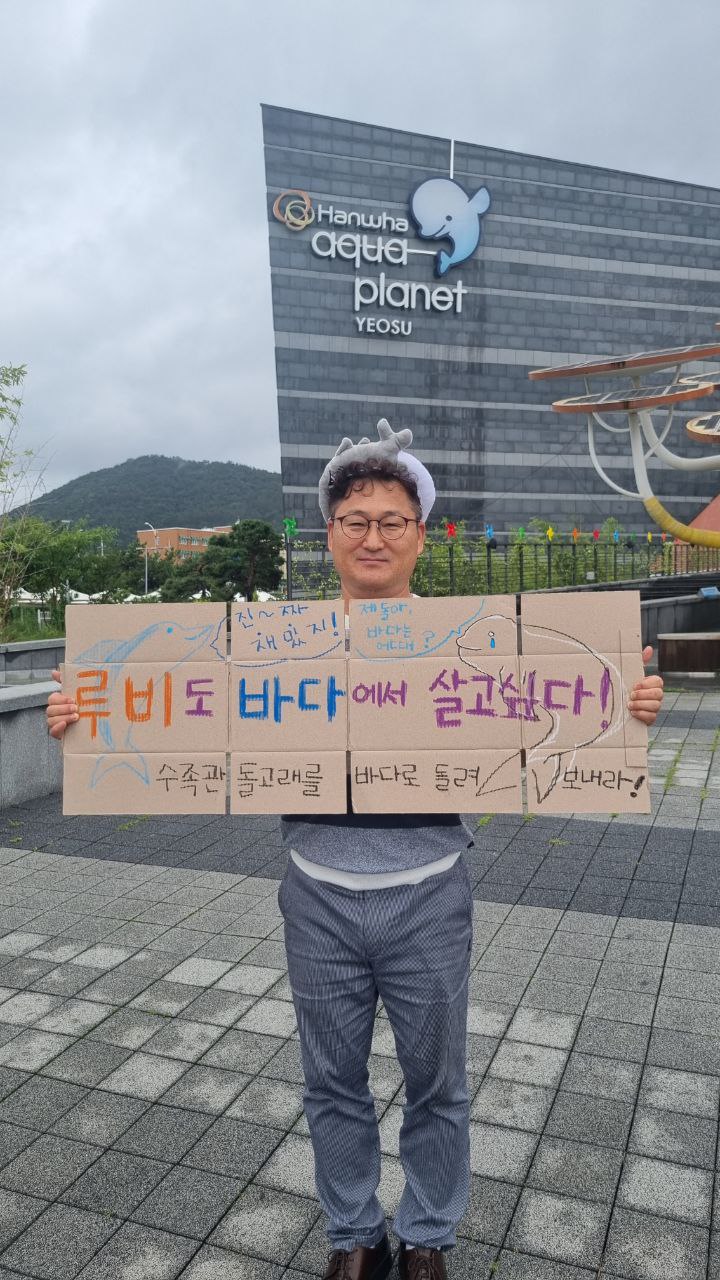 Hanwha
aqua
planet
YEOSU
진~짜
재밌지!
제돌아,
바다는
어때?
루비도 바다에서 살고싶다!
수족관 돌고래를 바다로 돌려보내라!